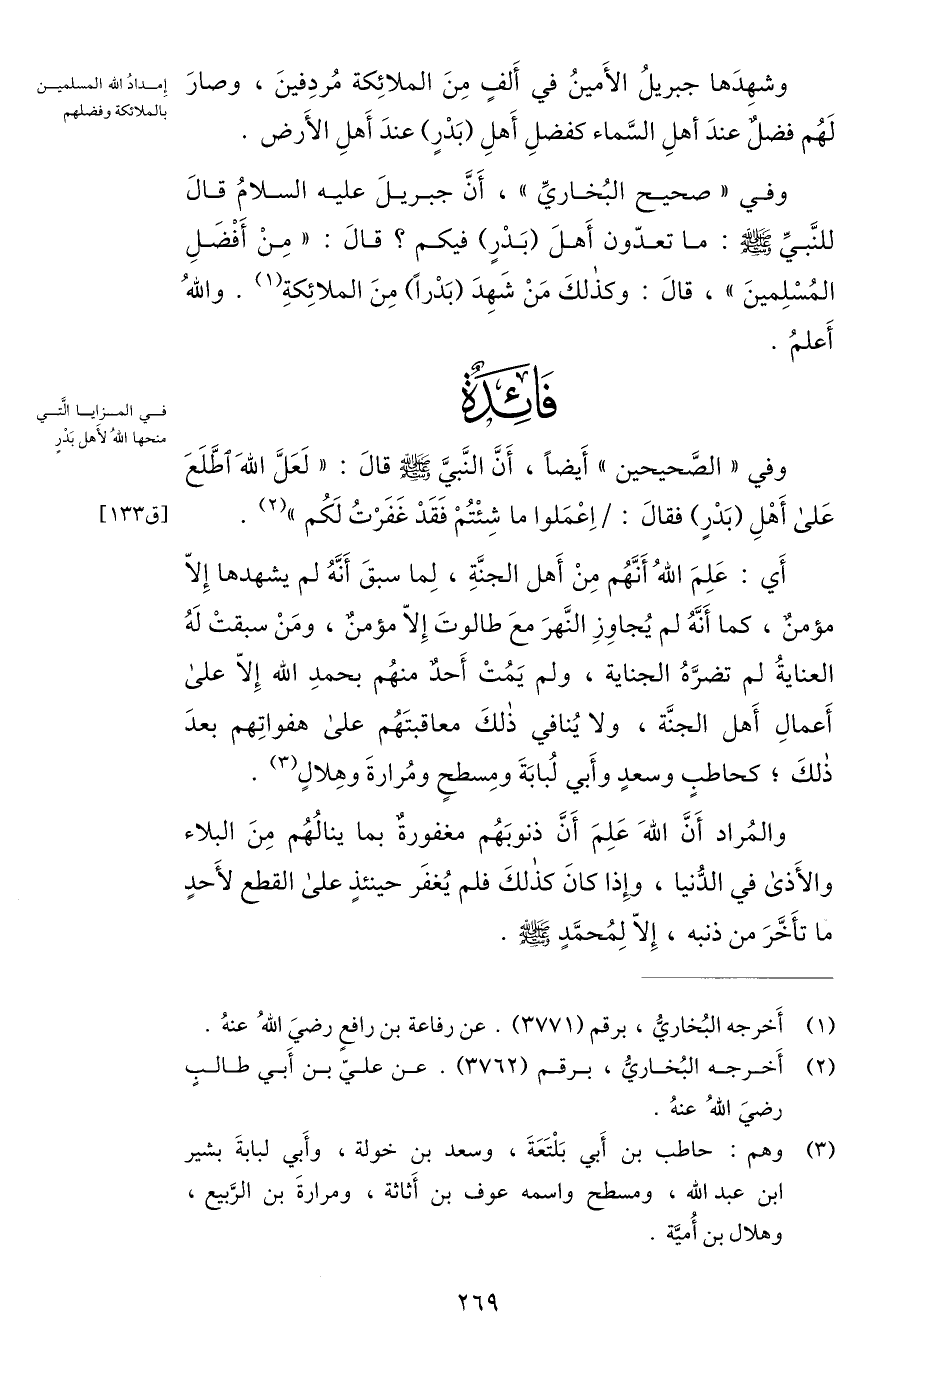 إمـدادُ الله المسلميـن
بالملائكة وفضلهم
وشهِدَها جبريلُ الأَمينُ في أَلفٍ مِنَ الملائِكة مُردِفينَ ، وصارَ
لَهُم فضلٌ عندَ أهلِ السَّماء كفضلِ أَهلِ (بَدْرٍ) عندَ أَهلِ الأَرض .
وفـي « صحيـح البُخـاريِّ » ، أَنَّ جبـريـلَ عليـه السـلامُ قـالَ
للنَّبـيِّ ﷺ : مـا تعـدّون أَهـلَ (بَـدْرٍ) فيكـم ؟ قـالَ : « مِـنْ أَفْضَـلِ
المُسْلِمينَ » ، قالَ : وكذٰلكَ مَنْ شَهِدَ (بَدْراً) مِنَ الملائِكةِ(١) . واللهُ
أَعلمُ .
فَائِدَةٌ
فـي المـزايـا الَّتـي
منحها اللهُ لأَهل بَدْرٍ
وفي « الصَّحيحين » أَيضاً ، أَنَّ النَّبيَّ ﷺ قالَ : « لَعَلَّ اللهَ ٱطَّلَعَ
عَلىٰ أَهْلِ (بَدْرٍ) فقالَ : / اِعْمَلوا ما شِئْتُمْ فَقَدْ غَفَرْتُ لَكُم »(٢) .
[ق١٣٣]
أَي : عَلِمَ اللهُ أَنَّهُم مِنْ أَهل الجنَّةِ ، لِما سبقَ أَنَّهُ لم يشهدها إِلاّ
مؤمنٌ ، كما أَنَّهُ لم يُجاوِزِ النَّهرَ معَ طالوتَ إِلاّ مؤمنٌ ، ومَنْ سبقتْ لَهُ
العنايةُ لم تضرَّهُ الجناية ، ولم يَمُتْ أَحدٌ منهُم بحمدِ الله إِلاّ علىٰ
أَعمالِ أَهل الجنَّة ، ولا يُنافي ذٰلكَ معاقبتَهُم علىٰ هفواتِهم بعدَ
ذٰلكَ ؛ كحاطبٍ وسعدٍ وأَبي لُبابَةَ ومِسطحٍ ومُرارةَ وهِلالٍ(٣) .
والمُراد أَنَّ اللهَ عَلِمَ أَنَّ ذنوبَهُم مغفورةٌ بما ينالُهُم مِنَ البلاء
والأَذىٰ في الدُّنيا ، وإِذا كانَ كذٰلكَ فلم يُغفَر حينئذٍ علىٰ القطع لأَحدٍ
ما تأَخَّرَ من ذنبه ، إِلاّ لِمُحمَّدٍ ﷺ .
(١) أَخرجه البُخاريُّ ، برقم (٣٧٧١) . عن رفاعة بن رافعٍ رضيَ اللهُ عنهُ .
(٢) أَخـرجـه البُخـاريُّ ، بـرقـم (٣٧٦٢) . عـن علـيّ بـن أَبـي طـالـبٍ
رضيَ اللهُ عنهُ .
(٣) وهم : حاطب بن أَبي بَلْتَعَةَ ، وسعد بن خولة ، وأَبي لبابةَ بشير
ابن عبد الله ، ومسطح واسمه عوف بن أُثاثة ، ومرارةَ بن الرَّبيع ،
وهلال بن أُميَّة .
٢٦٩